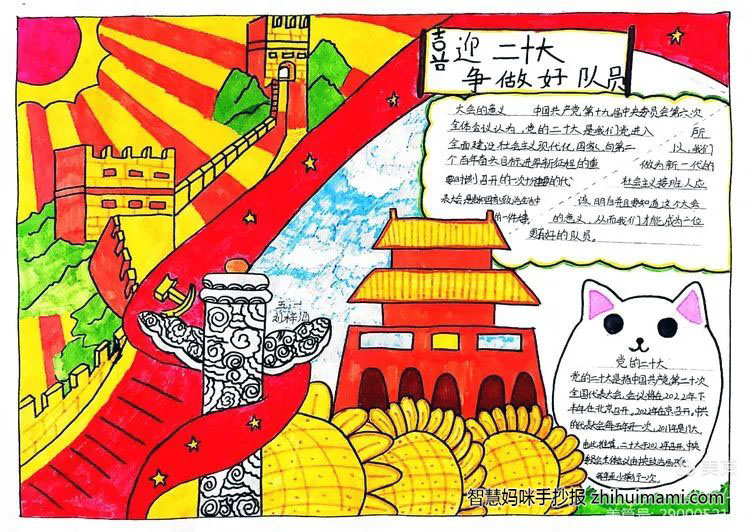 喜迎二十大
争做好队员
大会的意义 中国共产党第十九届中央委员会第六次
全体会议认为，党的二十大是我们党进入 所
全面建设社会主义现代化国家，向第二 以，我们
个百年奋斗目标进军新征程的重 做为新一代的
要时刻召开的一次十分重要的代 社会主义接班人应
表大会，是 政治生活中 该明白并且要知道这个大会
的一件大事。 的意义，从而我们才能成为一位
更有好的队员。
五、二
党的二十大
党的二十大是指中国共产党第二十次
全国代表大会，会议将在2022年下
半年在北京召开。2022年在京召开。中共
的代表大会每五年开一次，2017年是19大，
由此推算，二十大于2022召开。中央
委员会全体会议由中央政治局召开
每年至少举行一次。
智慧妈咪手抄报 zhihuimami.com